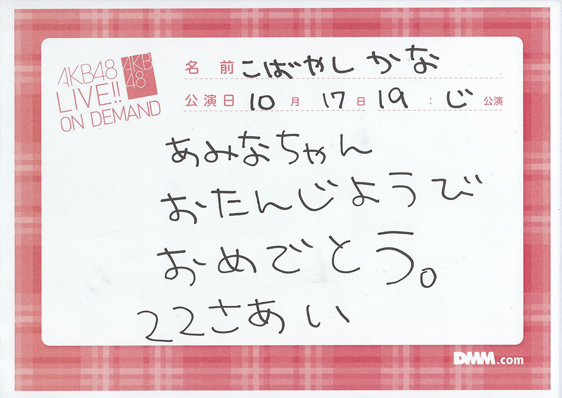 AKB48
LIVE!!
ON DEMAND
AKB
48
名前 こばやしかな
公演日 10月17日19:じ公演
あみなちゃん
おたんじようび
おめでとう。
22さあい
DMM.com